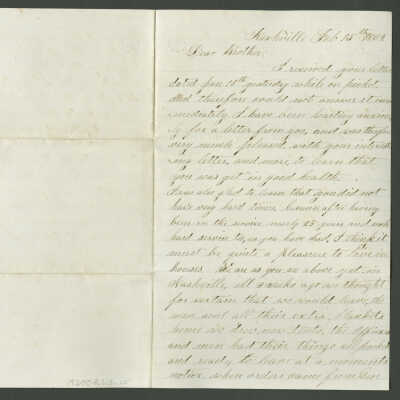 Nashville Feb 15th
Dear Brother
I received your letter
dated Jan 10th yesterday while on picket
therefore could not answer it
mediately. I have been waiting
ly for a letter from you, and was
very much pleased with your interest
ing letter, and more to learn that
you was yet in good health.
I was also glad to learn that you did not
have very hard times, knowing after having
been in the service nearly 25 years and such
hard service to, as you have had, I think it
must be quite a pleasure to live in
houses. We are as you see above yet in
Nashville, all weeks ago we thought
for certain that we would leave, the
men sent all their extra Blankets
tents, the officers
and men had their things all packed
and ready to leave at a moments
notice, when orders came from